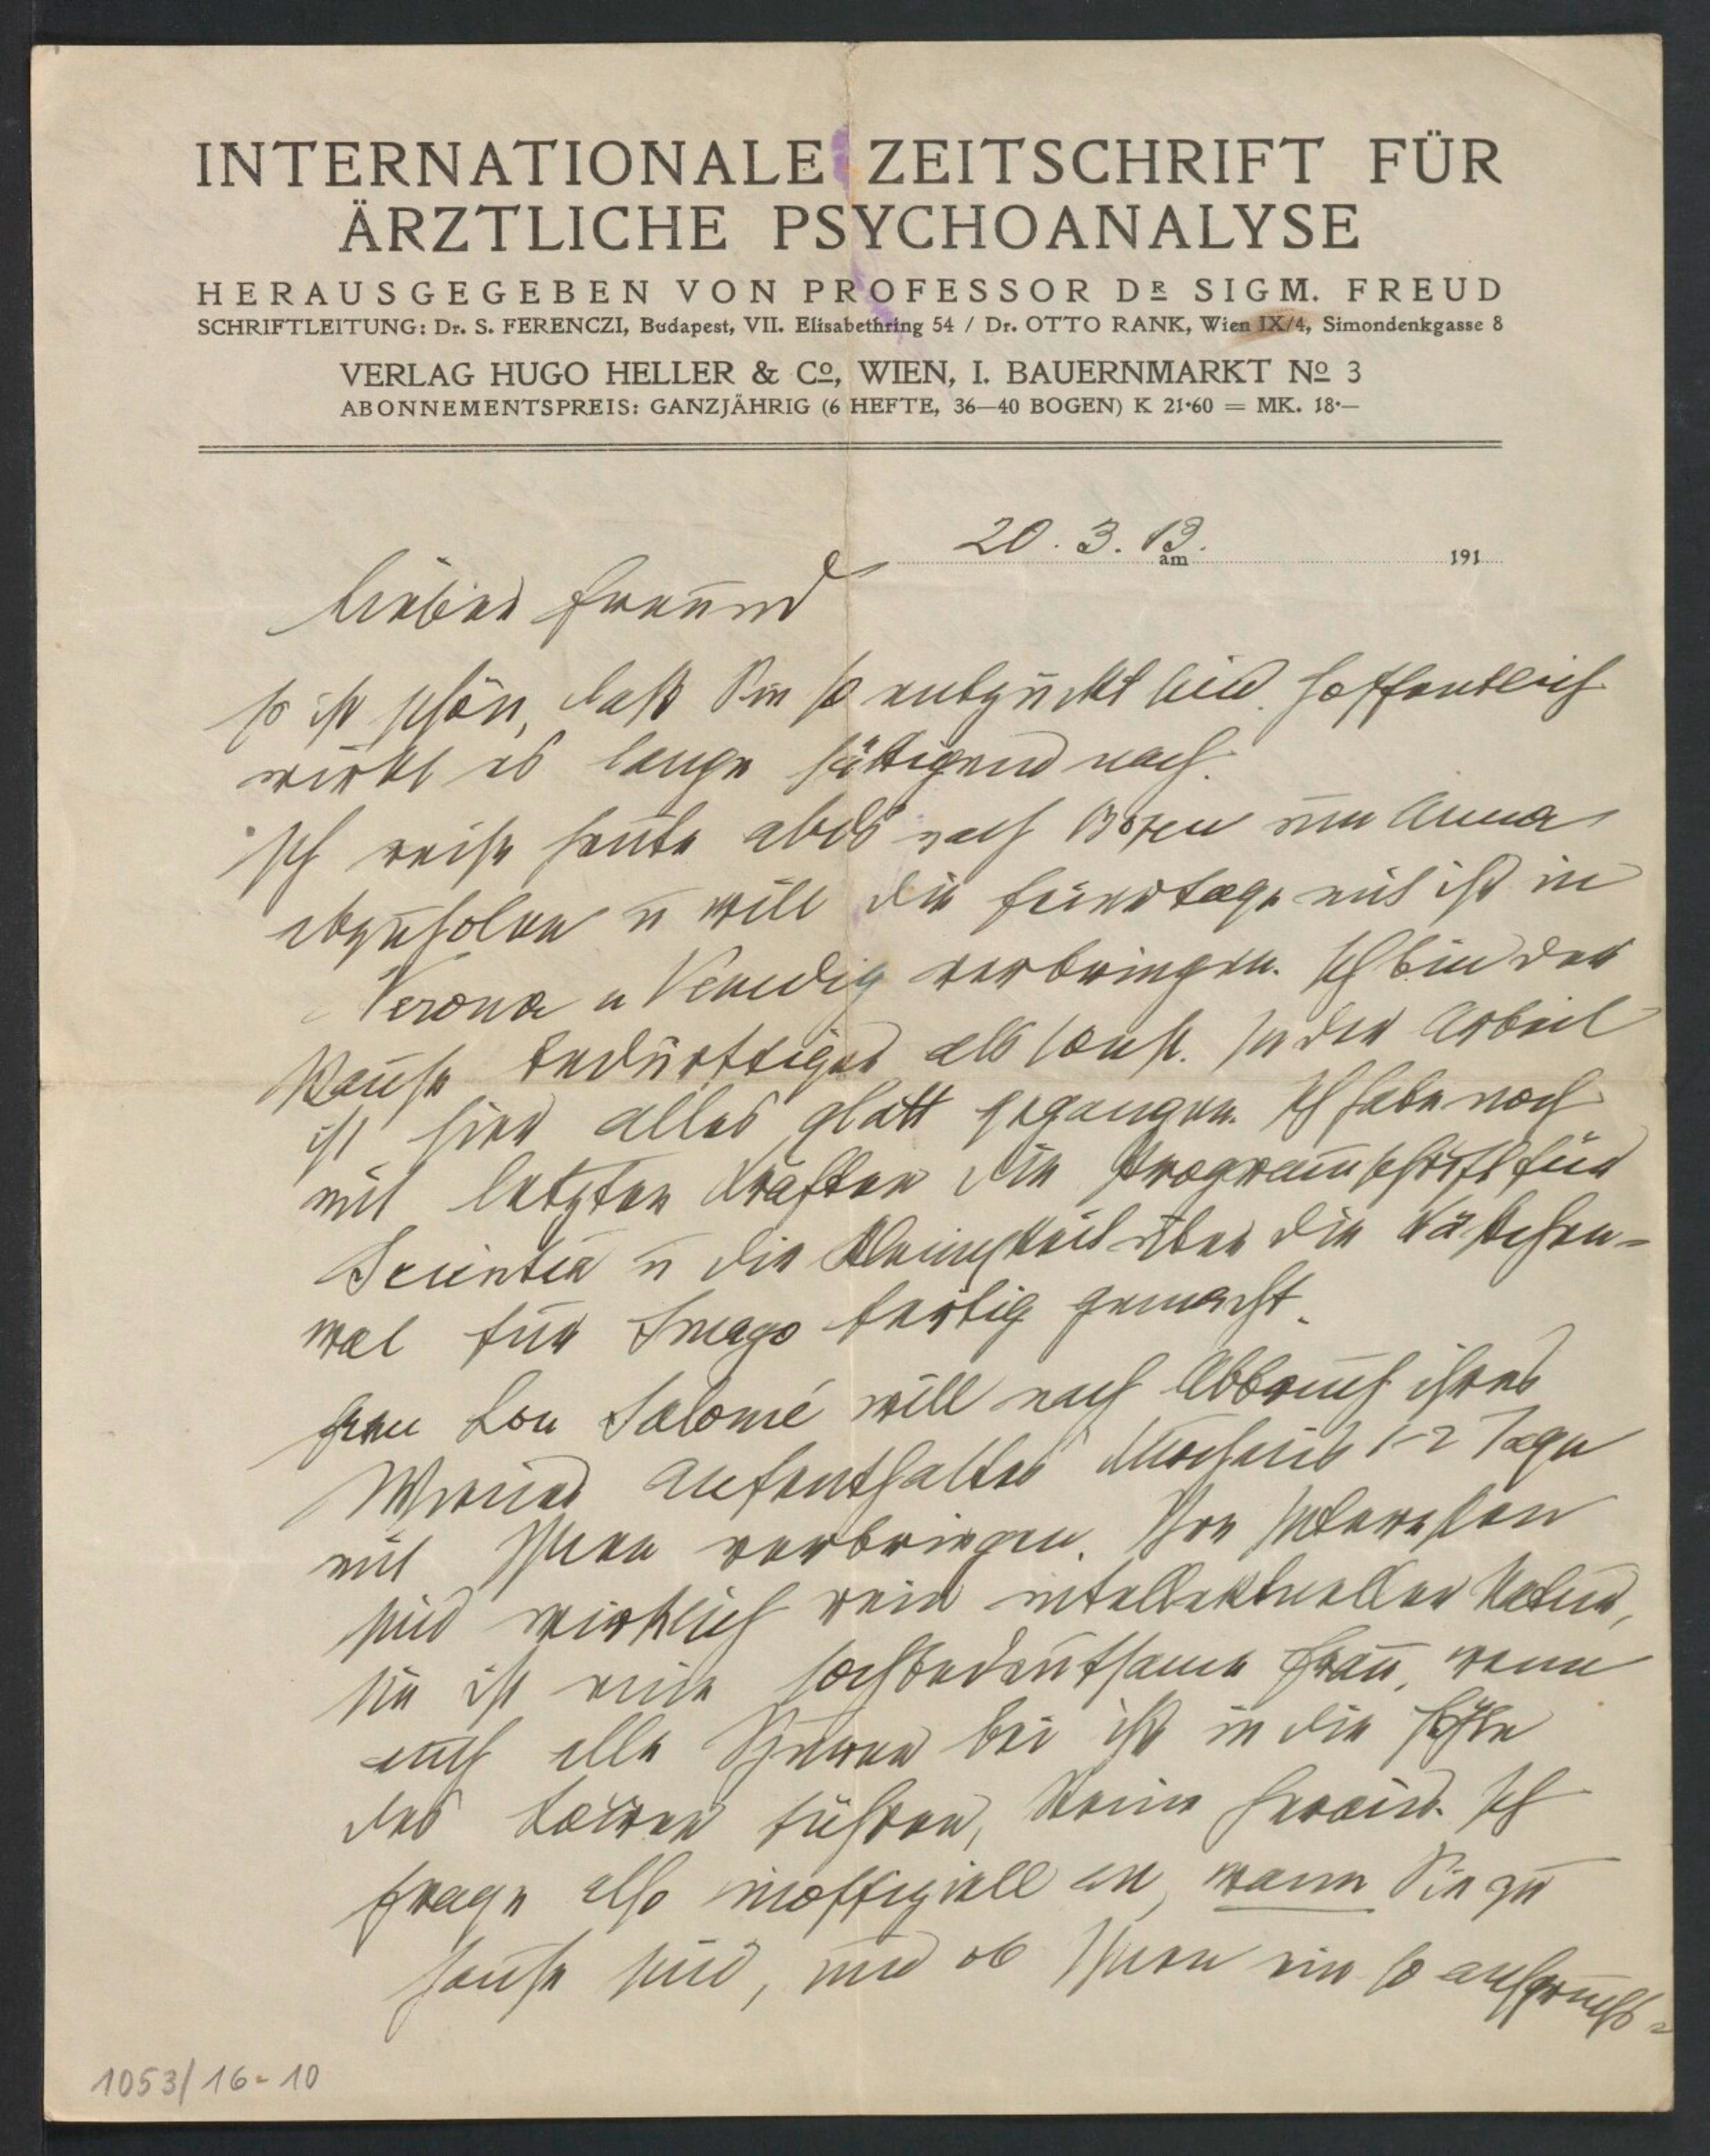 INTERNATIONALE ZEITSCHRIFT FÜR
ÄRZTLICHE PSYCHOANALYSE
HERAUSGEGEBEN VON PROFESSOR DR SIGM. FREUD
SCHRIFTLEITUNG: Dr. S. FERENCZI, Budapest, VII. Elisabethring 54 / Dr. OTTO RANK, Wien IX/4, Simondenkgasse 8
VERLAG HUGO HELLER & Co, WIEN, I. BAUERNMARKT No 3
ABONNEMENTSPREIS: GANZJÄHRIG (6 HEFTE, 36—40 BOGEN) K 21·60 = MK. 18·—
20. 3. 13.
am 191
Lieber Freund
Es ist schön, daß Sie so entzückt sind. Hoffentlich
wirkt es lange sättigend nach.
Ich reise heute abds nach Bozen um Anna
abzuholen u will die Feiertage mit ihr in
Verona u Venedig verbringen. Ich bin der
Pause bedürftiger als sonst. In der Arbeit
ist hier alles glatt gegangen. Ich habe noch
mit letzten Kräften die Programmschrift für
Scientia u die Kleinigkeit über die Kästchen-
wal für Imago fertig gemacht.
Frau Lou Salomé will nach Abbruch ihres
Wiener Aufenthaltes 1-2 Tage
mit Ihnen verbringen. Ihre Interessen
sind wirklich rein intellektueller Natur,
sie ist eine hochbedeutsame Frau, wenn
auch alle Spuren bei ihr in die Höhle
des Löwen führen, keine heraus. Ich
frage also inoffiziell an, wann Sie zu
Hause sind, und ob Ihnen ein so anspruchs-
1053/16-10